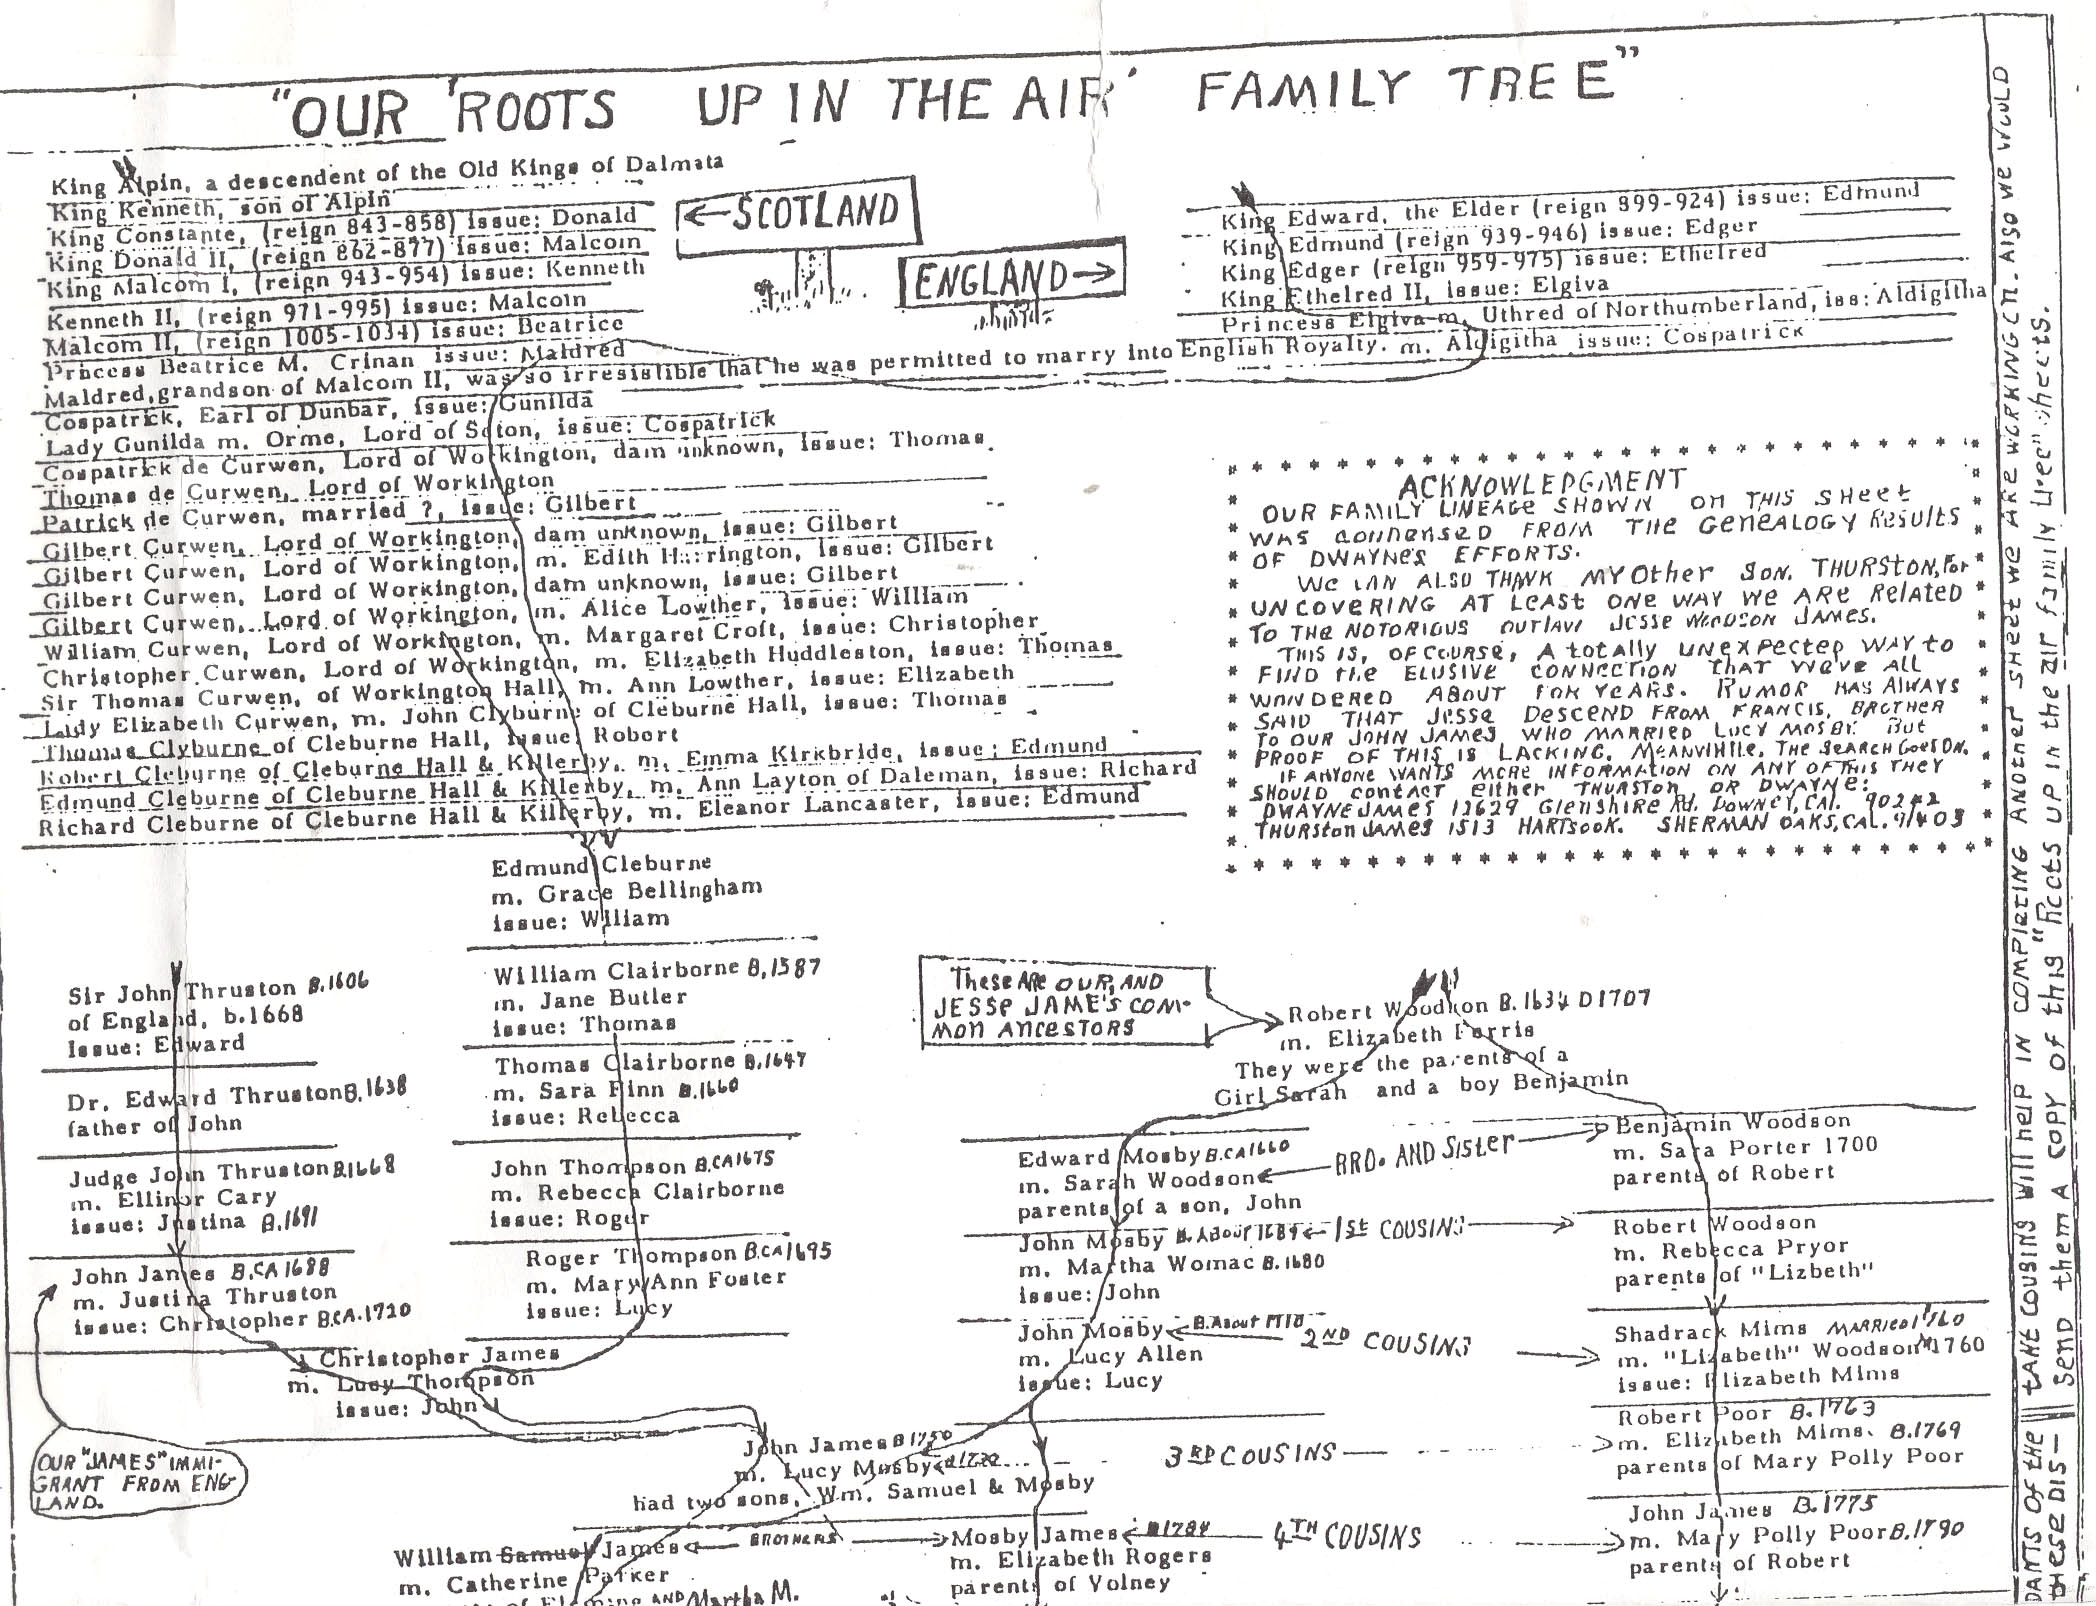 "OUR 'ROOTS UP IN THE AIR' FAMILY TREE"
King Alpin, a descendent of the Old Kings of Dalmata
King Kenneth, son of Alpin
King Constante, (reign 843-858) issue: Donald
King Donald II, (reign 862-877) issue: Malcom
King Malcom I, (reign 943-954) issue: Kenneth
Kenneth II, (reign 971-995) issue: Malcom
Malcom II, (reign 1005-1034) issue: Beatrice
Princess Beatrice M. Crinan issue: Maldred
Maldred, grandson of Malcom II, was so irresistible that he was permitted to marry into English Royalty. m. Aldigitha issue: Cospatrick
Cospatrick, Earl of Dunbar, issue: Gunilda
Lady Gunilda m. Orme, Lord of Seton, issue: Cospatrick
Cospatrick de Curwen, Lord of Workington, dam unknown, issue: Thomas
Thomas de Curwen, Lord of Workington
Patrick de Curwen, married ?, issue: Gilbert
Gilbert Curwen, Lord of Workington, dam unknown, issue: Gilbert
Gilbert Curwen, Lord of Workington, m. Edith Harrington, issue: Gilbert
Gilbert Curwen, Lord of Workington, dam unknown, issue: Gilbert
Gilbert Curwen, Lord of Workington, m. Alice Lowther, issue: William
William Curwen, Lord of Workington, m. Margaret Croft, issue: Christopher
Christopher Curwen, Lord of Workington, m. Elizabeth Huddleston, issue: Thomas
Sir Thomas Curwen, of Workington Hall, m. Ann Lowther, issue: Elizabeth
Lady Elizabeth Curwen, m. John Clyburne of Cleburne Hall, issue: Thomas
Thomas Clyburne of Cleburne Hall, issue: Robert
Robert Cleburne of Cleburne Hall & Killerby, m. Emma Kirkbride, issue: Edmund
Edmund Cleburne of Cleburne Hall & Killerby, m. Ann Layton of Daleman, issue: Richard
Richard Cleburne of Cleburne Hall & Killerby, m. Eleanor Lancaster, issue: Edmund
←SCOTLAND
ENGLAND→
King Edward, the Elder (reign 899-924) issue: Edmund
King Edmund (reign 939-946) issue: Edger
King Edger (reign 959-975) issue: Ethelred
King Ethelred II, issue: Elgiva
Princess Elgiva m. Uthred of Northumberland, iss: Aldigitha
ACKNOWLEDGMENT
OUR FAMILY LINEAGE SHOWN ON THIS SHEET
WAS CONDENSED FROM THE GENEALOGY RESULTS
OF DWAYNE'S EFFORTS.
WE CAN ALSO THANK MY OTHER SON, THURSTON, FOR
UNCOVERING AT LEAST ONE WAY WE ARE RELATED
TO THE NOTORIOUS OUTLAW JESSE WOODSON JAMES.
THIS IS, OF COURSE, A TOTALLY UNEXPECTED WAY TO
FIND THE ELUSIVE CONNECTION THAT WE'VE ALL
WONDERED ABOUT FOR YEARS. RUMOR HAS ALWAYS
SAID THAT JESSE DESCEND FROM FRANCIS, BROTHER
TO OUR JOHN JAMES WHO MARRIED LUCY MOSBY. BUT
PROOF OF THIS IS LACKING. MEANWHILE, THE SEARCH GOES ON.
IF ANYONE WANTS MORE INFORMATION ON ANY OF THIS THEY
SHOULD CONTACT EITHER THURSTON OR DWAYNE:
DWAYNE JAMES 12629 GLENSHIRE RD. DOWNEY, CAL. 90242
THURSTON JAMES 1513 HARTSOOK. SHERMAN OAKS, CAL. 91403
Edmund Cleburne
m. Grace Bellingham
issue: William
William Clairborne B. 1587
m. Jane Butler
issue: Thomas
Thomas Clairborne B. 1647
m. Sara Finn B. 1660
issue: Rebecca
John Thompson B. CA 1675
m. Rebecca Clairborne
issue: Roger
Roger Thompson B. CA 1695
m. Mary Ann Foster
issue: Lucy
Sir John Thruston B. 1606
of England, b. 1668
Issue: Edward
Dr. Edward Thruston B. 1638
father of John
Judge John Thruston B. 1668
m. Ellinor Cary
issue: Justina B. 1691
John James B. CA 1688
m. Justina Thruston
issue: Christopher B. CA. 1720
Christopher James
m. Lucy Thompson
issue: John
OUR "JAMES" IMMI-
GRANT FROM ENG
LAND.
THESE ARE OUR, AND
JESSE JAME'S COM-
MON ANCESTORS
Robert Woodson B. 1634 D 1707
m. Elizabeth Ferris
They were the parents of a
Girl Sarah and a boy Benjamin
Edward Mosby B. CA 1660
m. Sarah Woodson
parents of a son, John
BRO. AND SISTER
Benjamin Woodson
m. Sara Porter 1700
parents of Robert
John Mosby B. ABOUT 1689
m. Martha Womac B. 1680
issue: John
1ST COUSINS
Robert Woodson
m. Rebecca Pryor
parents of "Lizbeth"
John Mosby B. About 1710
m. Lucy Allen
issue: Lucy
2ND COUSINS
Shadrack Mims MARRIED 1760
m. "Lizabeth" Woodson M 1760
issue: Elizabeth Mims
John James B 1750
m. Lucy Mosby
had two sons, Wm. Samuel & Mosby
3RD COUSINS
Robert Poor B. 1763
m. Elizabeth Mims. B. 1769
parents of Mary Polly Poor
William Samuel James
m. Catherine Parker
of Fleming AND Martha M.
BROTHERS
Mosby James B 1784
m. Elizabeth Rogers
parents of Volney
4TH COUSINS
John James B. 1775
m. Mary Polly Poor B. 1790
parents of Robert
DANTS OF the TAKE COUSINS Will help IN COMPLETING ANOTHER SHEET WE ARE WORKING ON. ALSO WE WOULD
THESE DIS- Send them A COPY OF this "ROOTS UP in the air family tree" sheets.